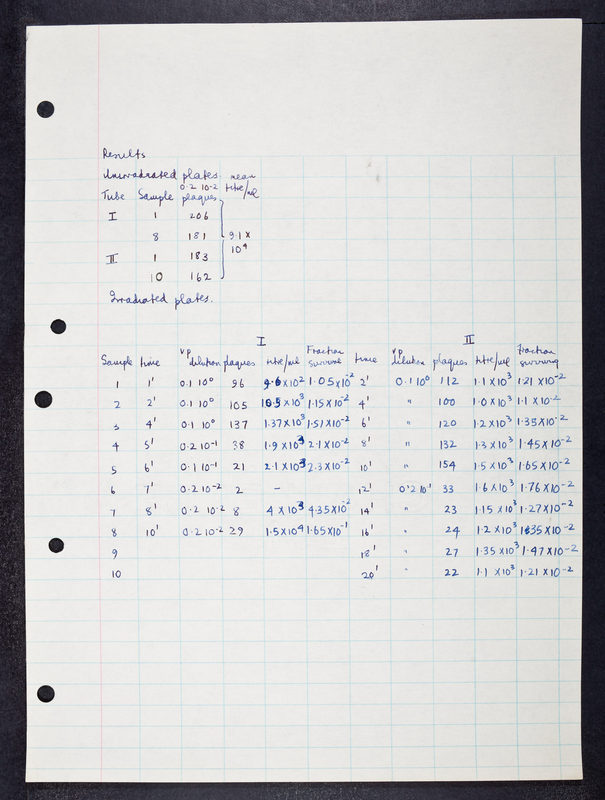 Results
Unirradiated plates. mean
0.2 10-2 titre/ml
Tube Sample plaques
I 1 206
8 181 9.1 x
II 1 183 10⁴
10 162
Irradiated plates.
I II
Sample time vp dilution plaques titre/ml Fraction survival time vp dilution plaques titre/ml fraction surviving
1 1' 0.1 10⁰ 96 9.6 x 10² 1.05 x 10⁻² 2' 0.1 10⁰ 112 1.1 x 10³ 1.21 x 10⁻²
2 2' 0.1 10⁰ 105 10.5 x 10³ 1.15 x 10⁻² 4' " 100 1.0 x 10³ 1.1 x 10⁻²
3 4' 0.1 10⁰ 137 1.37 x 10³ 1.51 x 10⁻² 6' " 120 1.2 x 10³ 1.35 x 10⁻²
4 5' 0.2 10⁻¹ 38 1.9 x 10³ 2.1 x 10⁻² 8' " 132 1.3 x 10³ 1.45 x 10⁻²
5 6' 0.1 10⁻¹ 21 2.1 x 10³ 2.3 x 10⁻² 10' " 154 1.5 x 10³ 1.65 x 10⁻²
6 7' 0.2 10⁻² 2 – 12' 0.2 10¹ 33 1.6 x 10³ 1.76 x 10⁻²
7 8' 0.2 10.2 8 4 x 10³ 4.35 x 10⁻² 14' " 23 1.15 x 10³ 1.27 x 10⁻²
8 10' 0.2 10⁻² 29 1.5 x 10⁴ 1.65 x 10⁻¹ 16' " 24 1.2 x 10³ 1.35 x 10⁻²
9 18' " 27 1.35 x 10³ 1.47 x 10⁻²
10 20' " 22 1.1 x 10³ 1.21 x 10⁻²